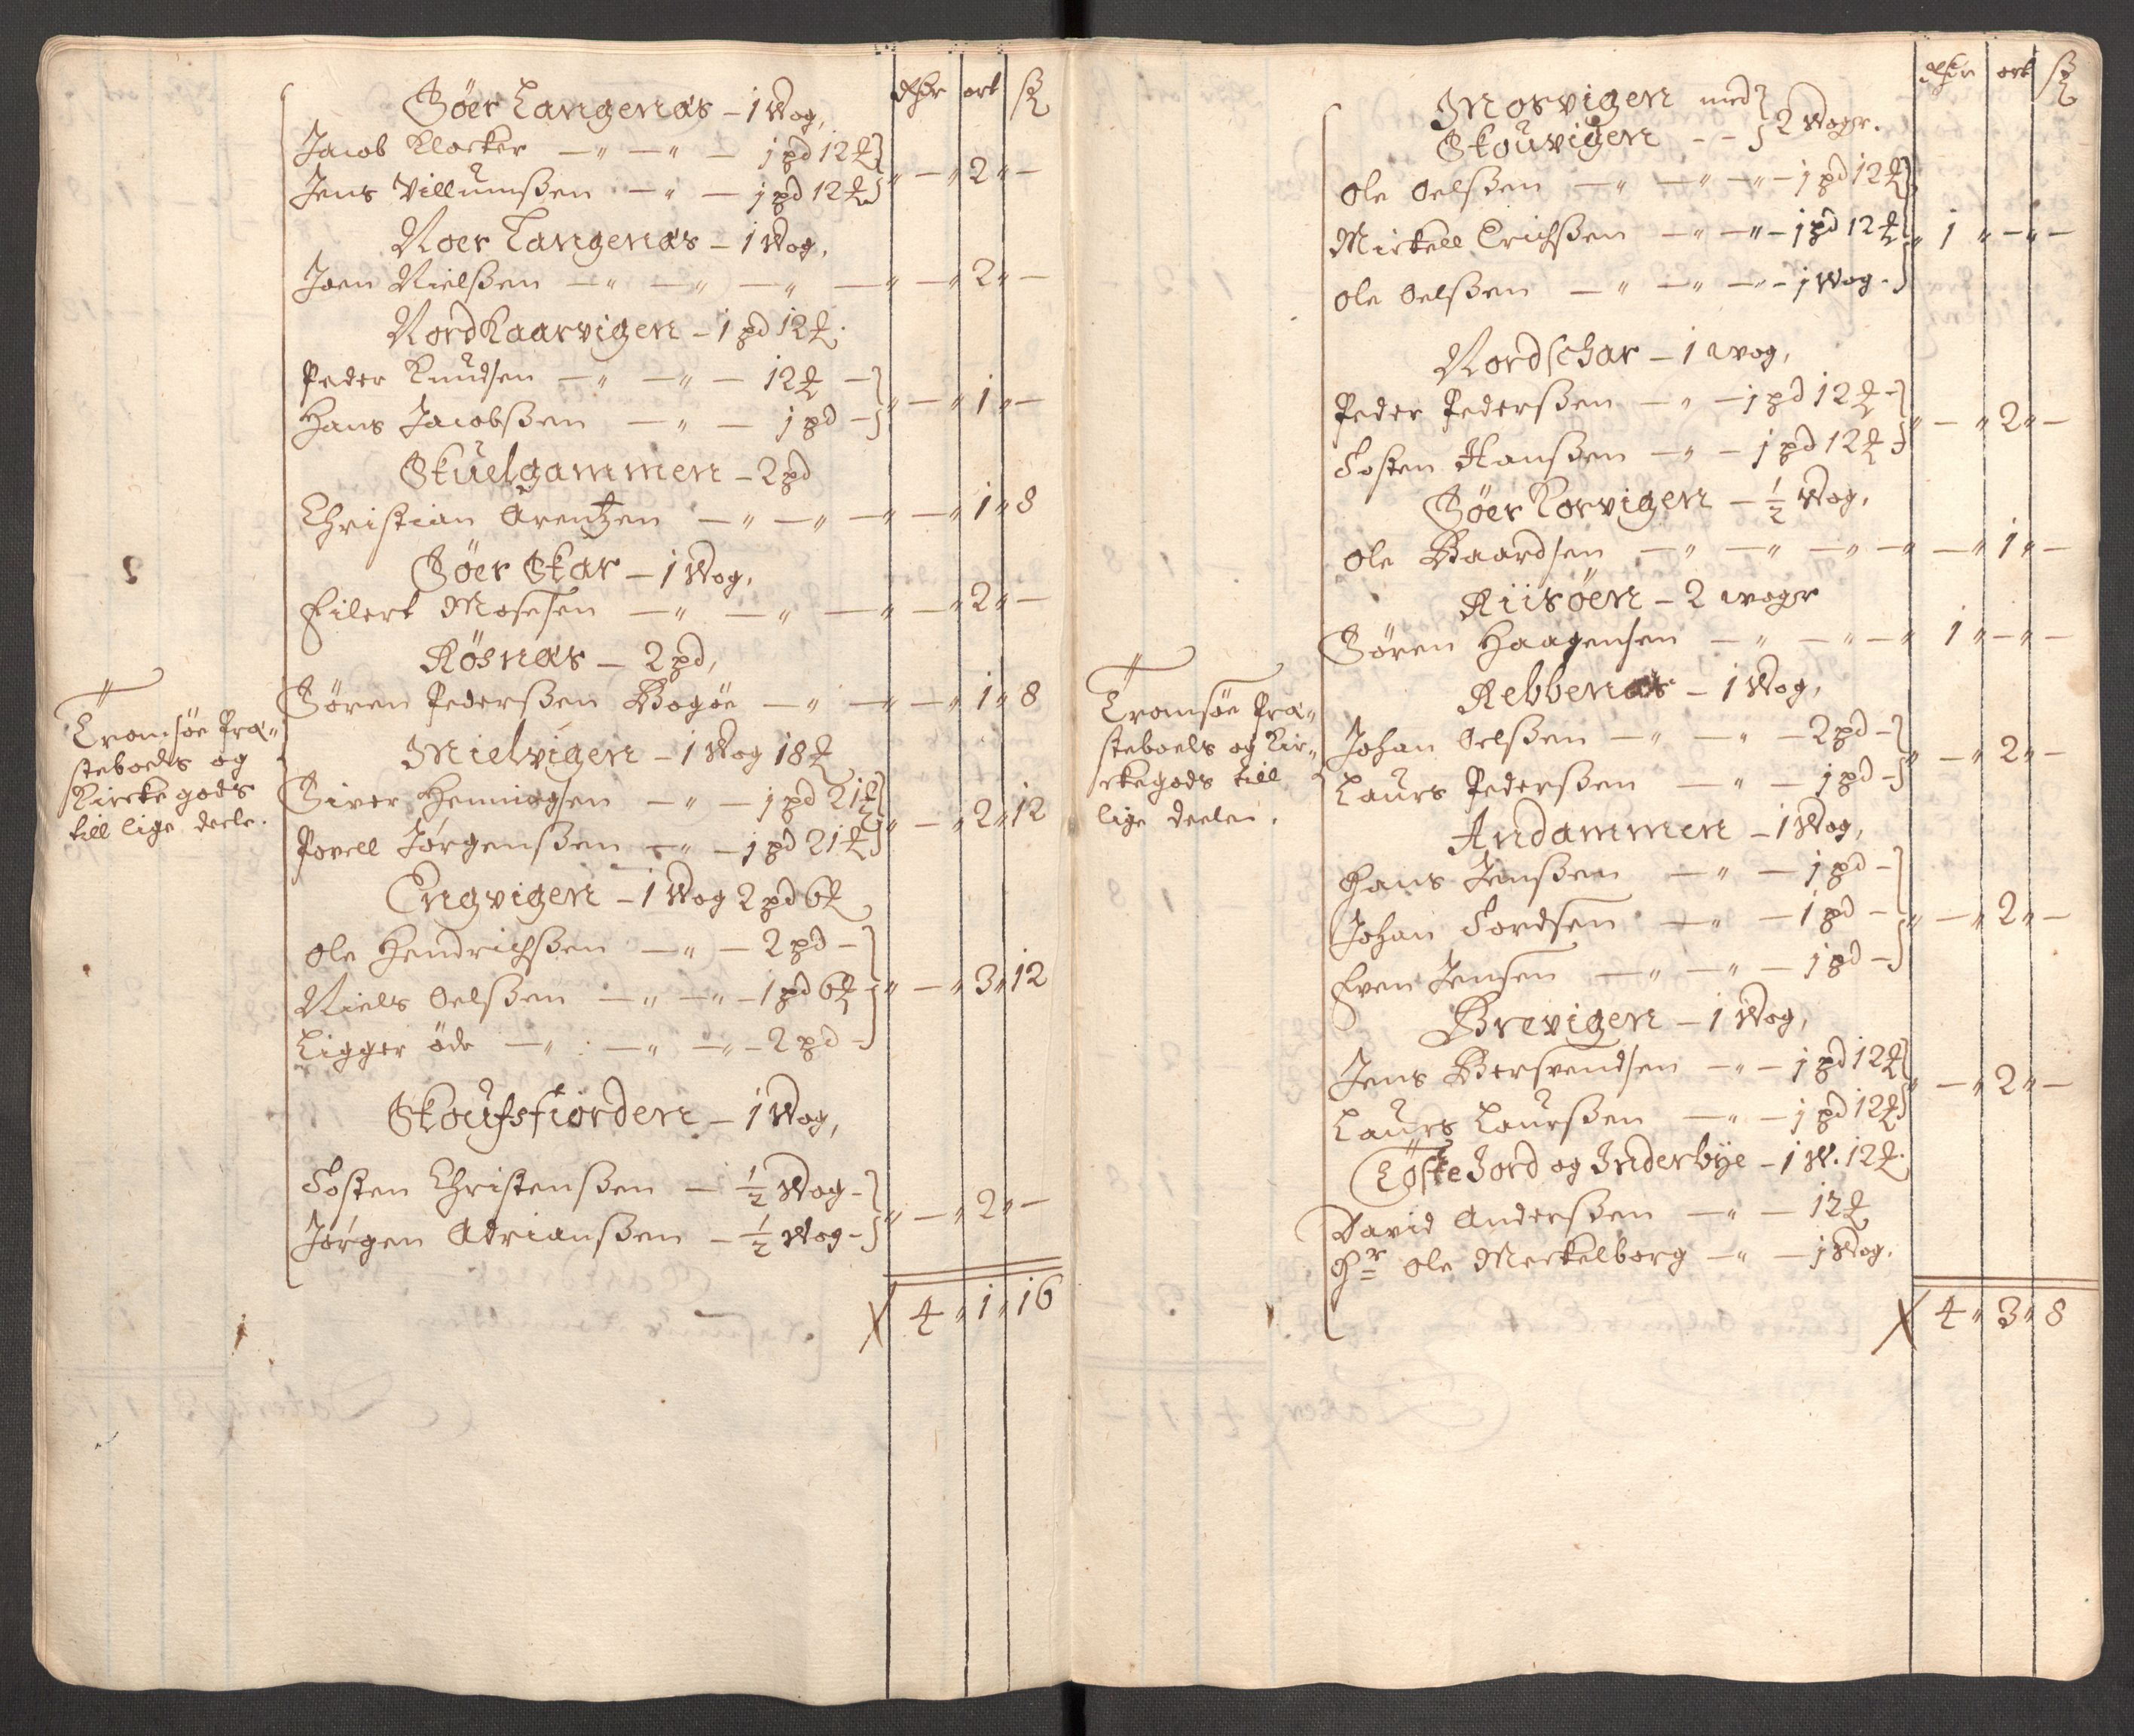 Rdlr ort ß
Söer Langenæs – 1 Wog,
Jacob Klocker – 1 pd 12 ℔
Jens Villumsßen – 1 pd 12 ℔ – 2 –
Noer Langenæs – 1 Wog.
Joen Nielsßen – 2 –
Nord Kaarvigen – 1 pd 12 ℔.
Peder Knudsen – 12 ℔
Hans Jacobsßen – 1 pd – 1 –
Skuelgammen – 2 pd
Christian Arentzen – 1 8
Söer Skar – 1 Wog,
Eilert Mosesen – 2 –
Rösnæs – 2 pd,
Sören Pedersßen Bogöe – 1 8
Mielvigen – 1 Wog 18 ℔
Siver Henningsen – 1 pd 21 ℔
Povell Jörgensßen – 1 pd 21 ℔ – 2 12
Engvigen – 1 Wog 2 pd 6 ℔
Ole Hendrichsßen – 2 pd
Niels Oelsßen – 1 pd 6 ℔ – 3 12
Ligger öde – 2 pd
Skoufsfiorden – 1 Wog,
Tosten Christensßen – ½ Wog
Jörgen Adriansßen – ½ Wog – 2 –
4 1 16
Tromsöe Præ-
steboels og
Kircke gods
till lige deele.
Rdlr ort ß
Mosvigen med
Skouvigen – 2 Wogr.
Ole Oelsßen – 1 pd 12 ℔
Mickell Erichsßen – 1 pd 12 ℔ 1 – –
Ole Oelsßen – 1 Wog
Nordschar – 1 wog,
Peder Pedersßen – 1 pd 12 ℔
Tosten Hansßen – 1 pd 12 ℔ – 2 –
Söer Korvigen – ½ Wog,
Ole Baardsen – 1 –
Riisöen – 2 wogr
Sören Haagensen 1 – –
Rebbenæs – 1 Wog,
Johan Oelsßen – 2 pd
Laurs Pedersßen – 1 pd – 2 –
Andammen – 1 Wog,
Hans Jensßen – 1 pd
Johan Tordsen – 1 pd – 2 –
Even Jensen – 1 pd
Brevigen – 1 Wog,
Jens Bersvendsen – 1 pd 12 ℔
Laurs Laursßen – 1 pd 12 ℔ – 2 –
Löste Jord og Inderbÿe – 1 W. 12 ℔.
David Andersßen – 12 ℔
Hr Ole Meckelborg – 1 Wog.
4 3 8
Tromsöe Præ-
steboels og Kir-
ckegods till
lige deelen.